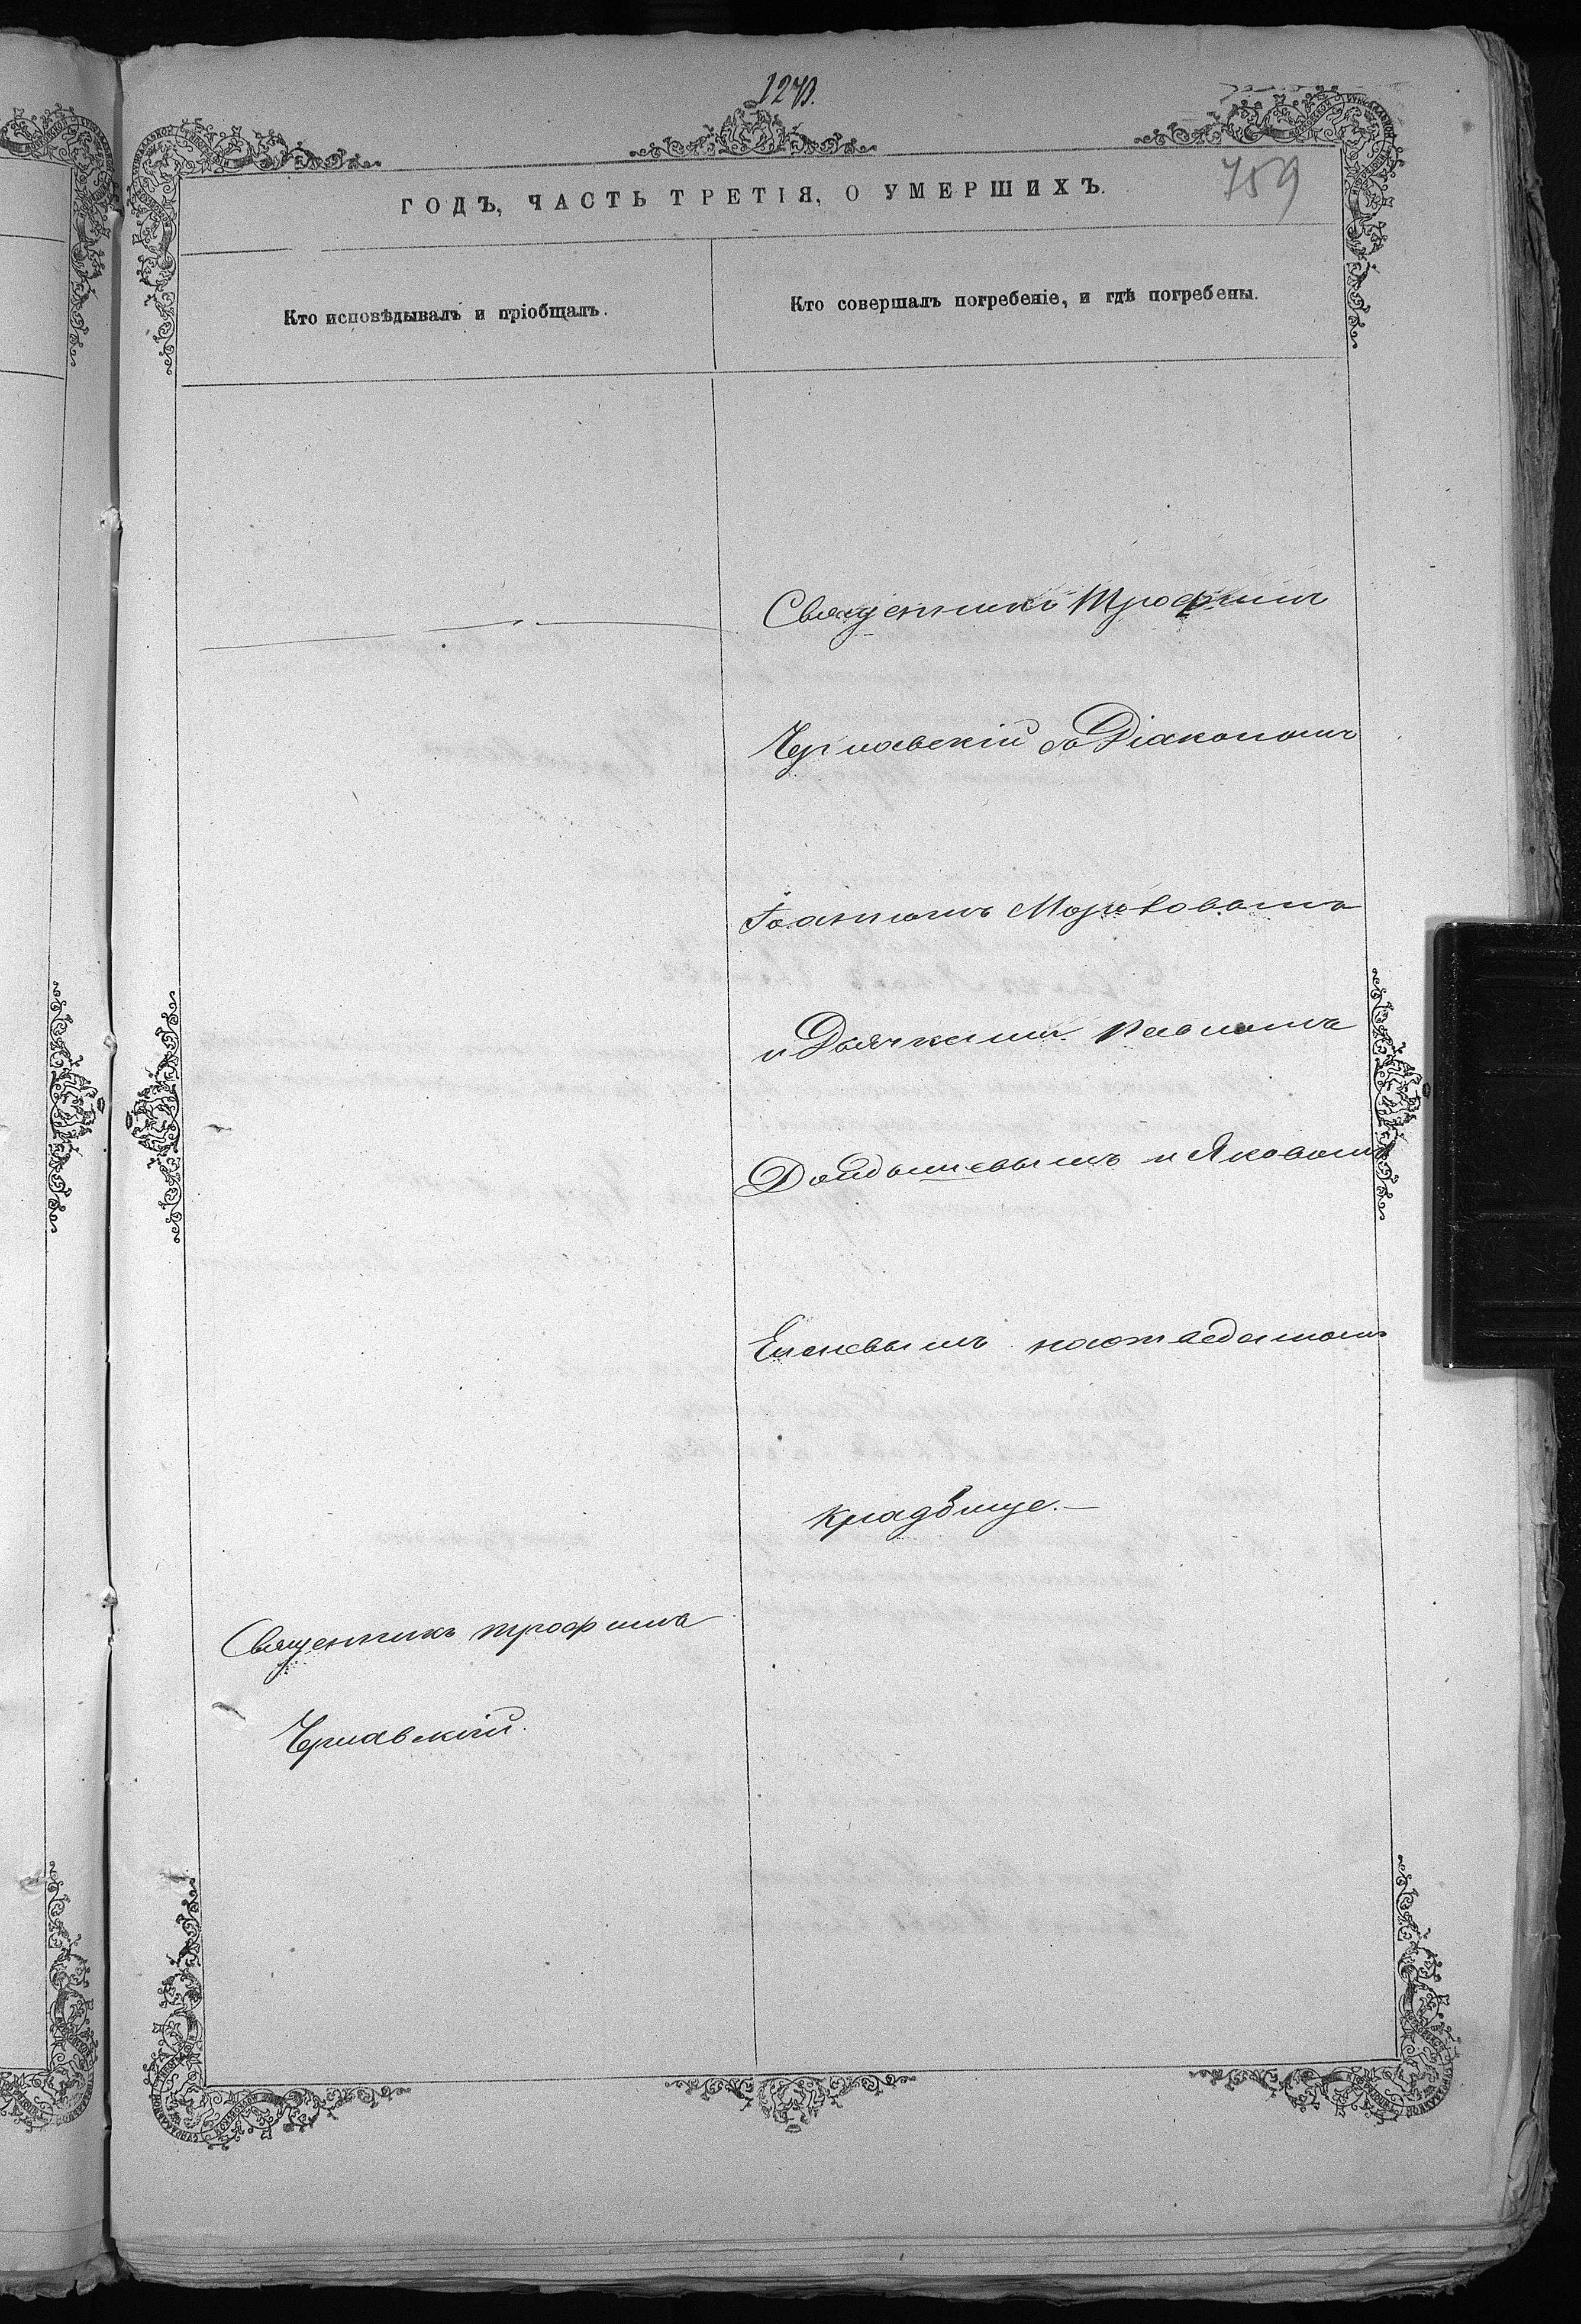 1273.
759
ГОДЪ, ЧАСТЬ ТРЕТІЯ, О УМЕРШИХЪ.
Кто исповѣдывалъ и пріобщалъ.
Кто совершалъ погребеніе, и гдѣ погребены.
Священникъ Трофимъ
Чернавскій съ Діакономъ
Іоанномъ Марковымъ
и Дьячками Павломъ
и Яковомъ
на
кладбище.—
Священникъ Трофимъ
Чернавскій.